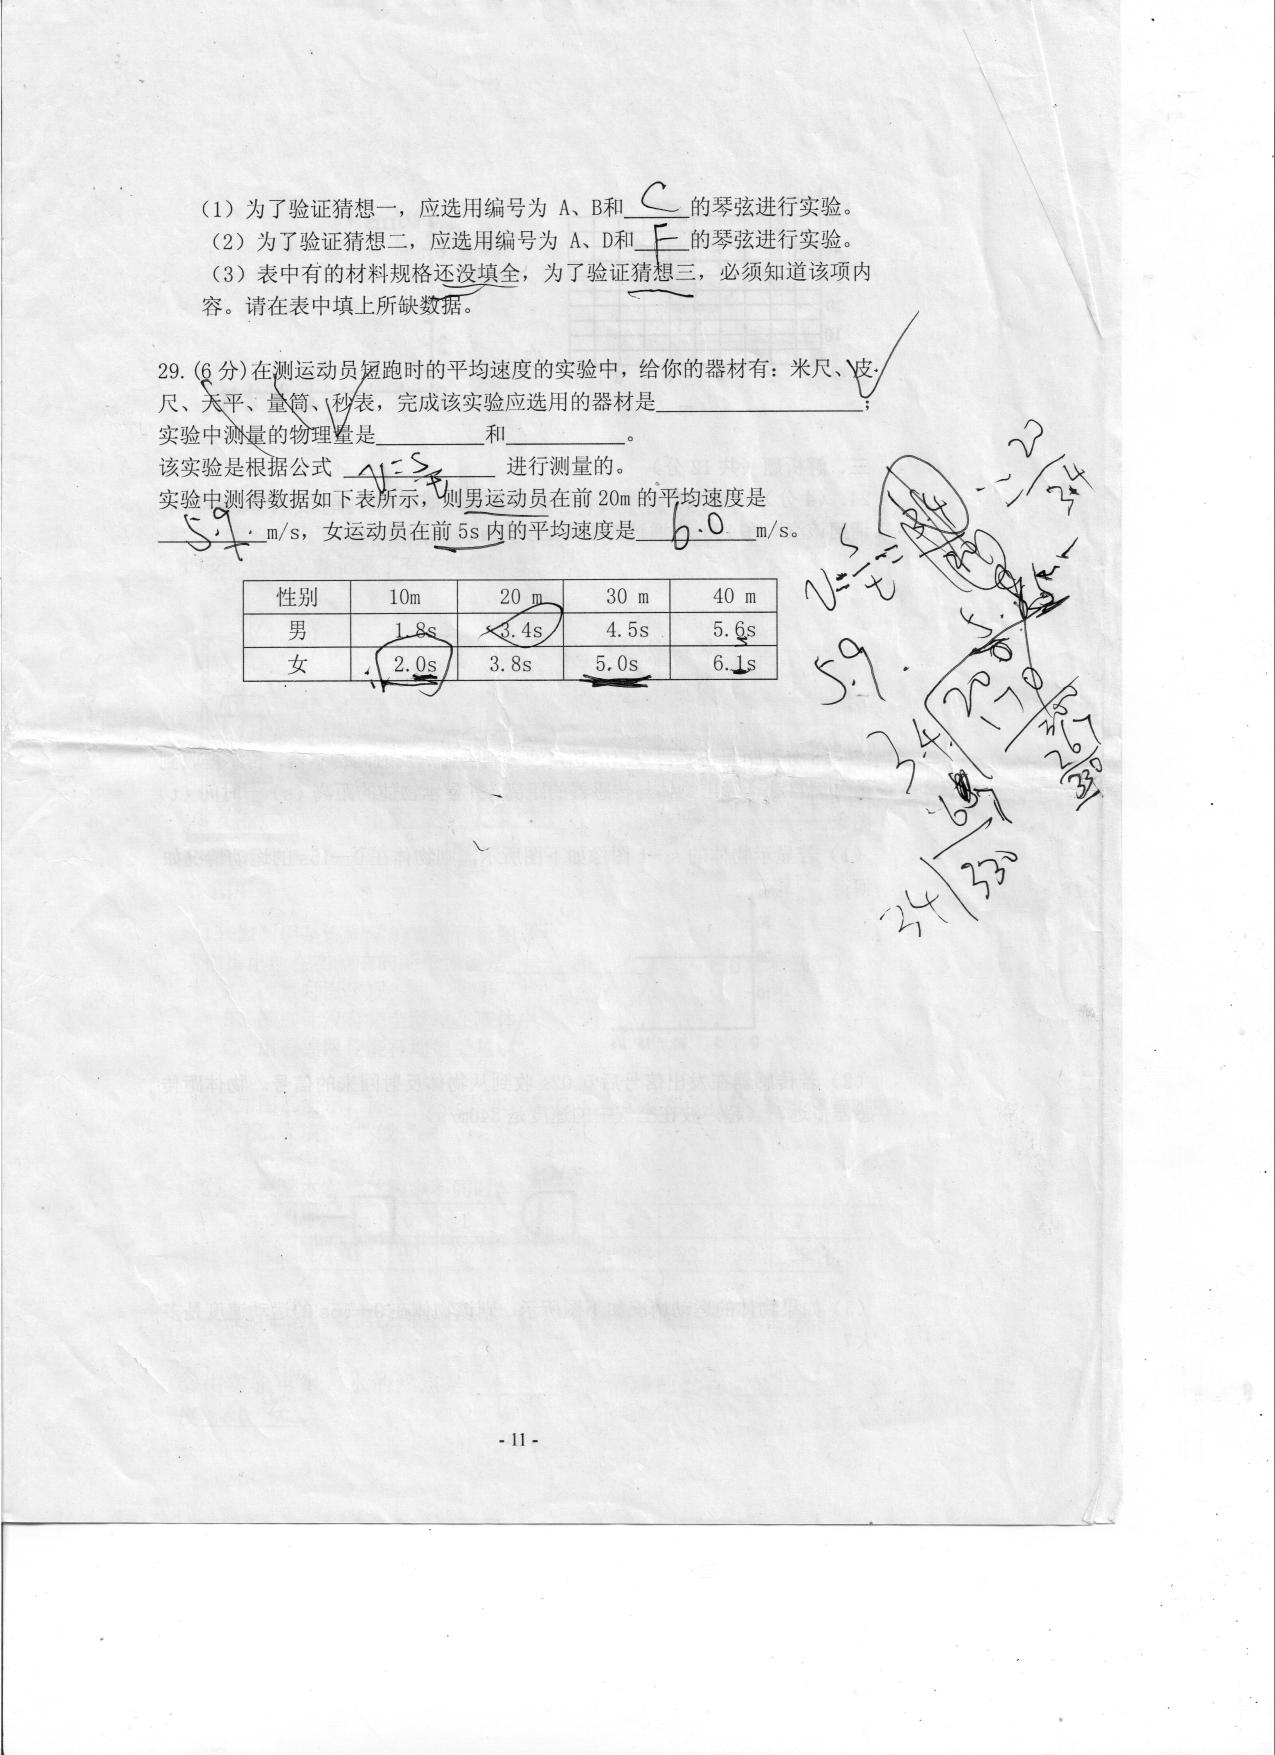 （1）为了验证猜想一，应选用编号为 A、B和 C 的琴弦进行实验。
（2）为了验证猜想二，应选用编号为 A、D和 F 的琴弦进行实验。
（3）表中有的材料规格还没填全，为了验证猜想三，必须知道该项内
容。请在表中填上所缺数据。
29.(6 分)在测运动员短跑时的平均速度的实验中，给你的器材有：米尺、皮
尺、天平、量筒、秒表，完成该实验应选用的器材是__________；
实验中测量的物理量是__________和__________。
该实验是根据公式 v=s/t 进行测量的。
实验中测得数据如下表所示，则男运动员在前 20m 的平均速度是
5.9 m/s，女运动员在前 5s 内的平均速度是 6.0 m/s。
性别 10m 20 m 30 m 40 m
男 1.8s 3.4s 4.5s 5.6s
女 2.0s 3.8s 5.0s 6.1s
v=s/t=
5.9
34 330
- 11 -